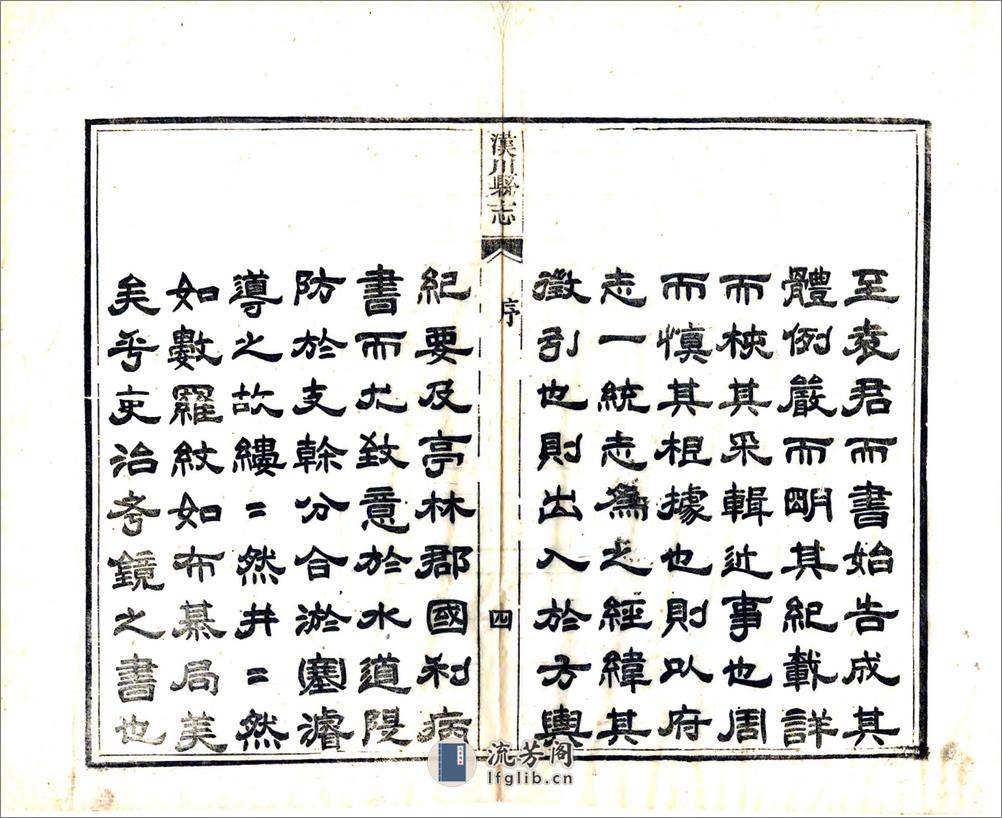 至袁君而書始告成其
體例嚴而明其紀載詳
而核其采輯近事也周
而慎其根據也則以府
志一統志為之經緯其
徵引也則出入於方輿
漢川縣志
序
四
紀要及亭林郡國利病
書而尤致意於水道隄
防於支榦分合淤塞濬
導之故縷〻然井〻然
如數羅紋如布棊局美
矣乎吏治考鏡之書也
流芳阁
lfglib.cn